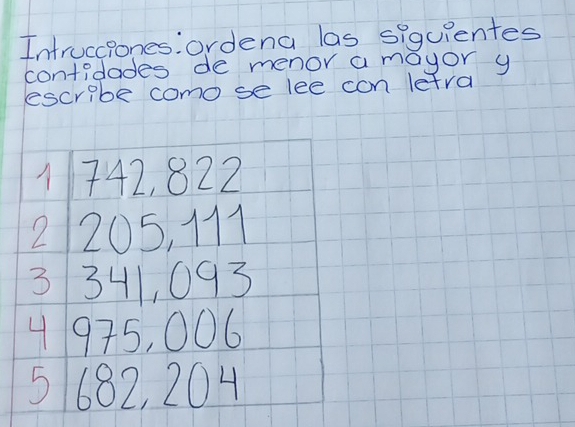 Intrucciones: ordena las siguientes
contidades de menor a mayor y
escribe como se lee con letra
1 742,822
2 205,111
3 341,093
4 975,006
5 682,204